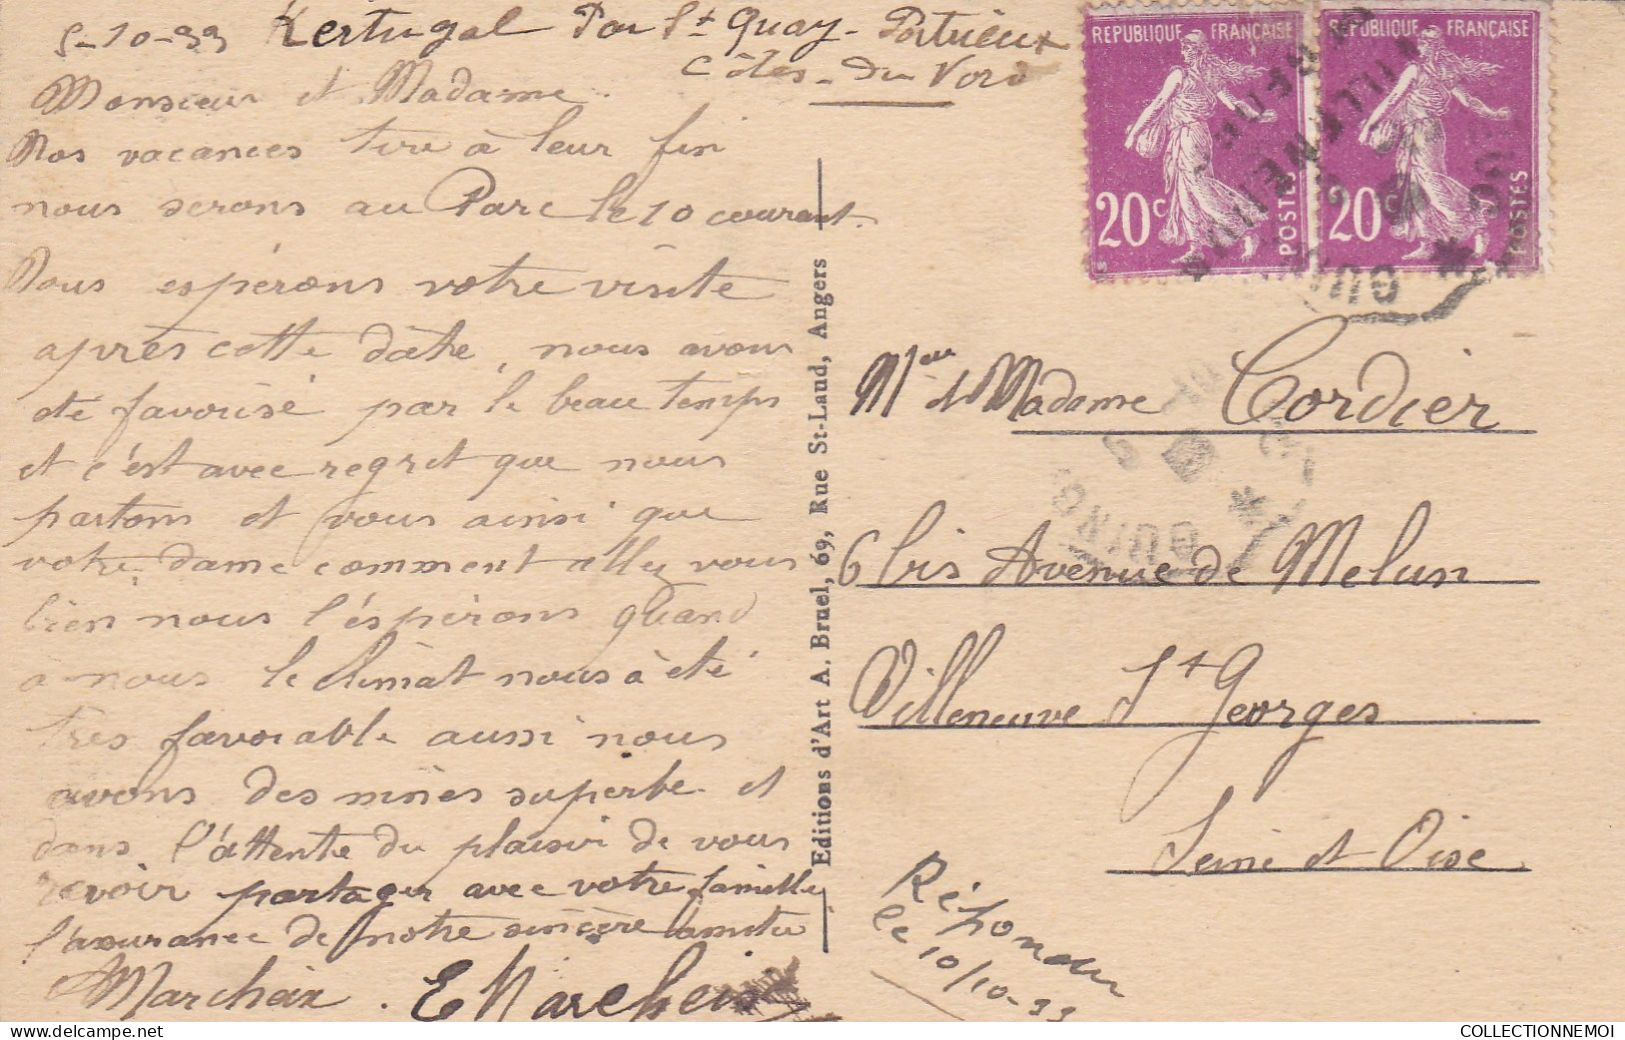 5-10-33 Kertugal Par St Quay-Portrieux
Côtes-du Nord
Monsieur et Madame.
Nos vacances tire à leur fin
nous serons au Parc le 10 courant.
Nous espérons votre visite
après cette date, nous avons
été favorisé par le beau temps
et c'est avec regret que nous
partons et vous ainsi que
votre dame comment allez vous
bien nous l'éspérons quand
à nous le climat nous à été
très favorable aussi nous
avons des mines superbe et
dans l'attente du plaisir de vous
revoir partager avec votre famille
l'assurance de notre sincère amitié
Marcheix. E Marcheix
Editions d'Art A. Bruel, 69, Rue St-Laud, Angers
REPUBLIQUE FRANÇAISE
20c
POSTES
REPUBLIQUE FRANÇAISE
20c
POSTES
Mr et Madame Cordier
6 bis Avenue de Melun
Villeneuve St Georges
Seine et Oise
Répondu
le 10/10-33
COLLECTIONNEMOI